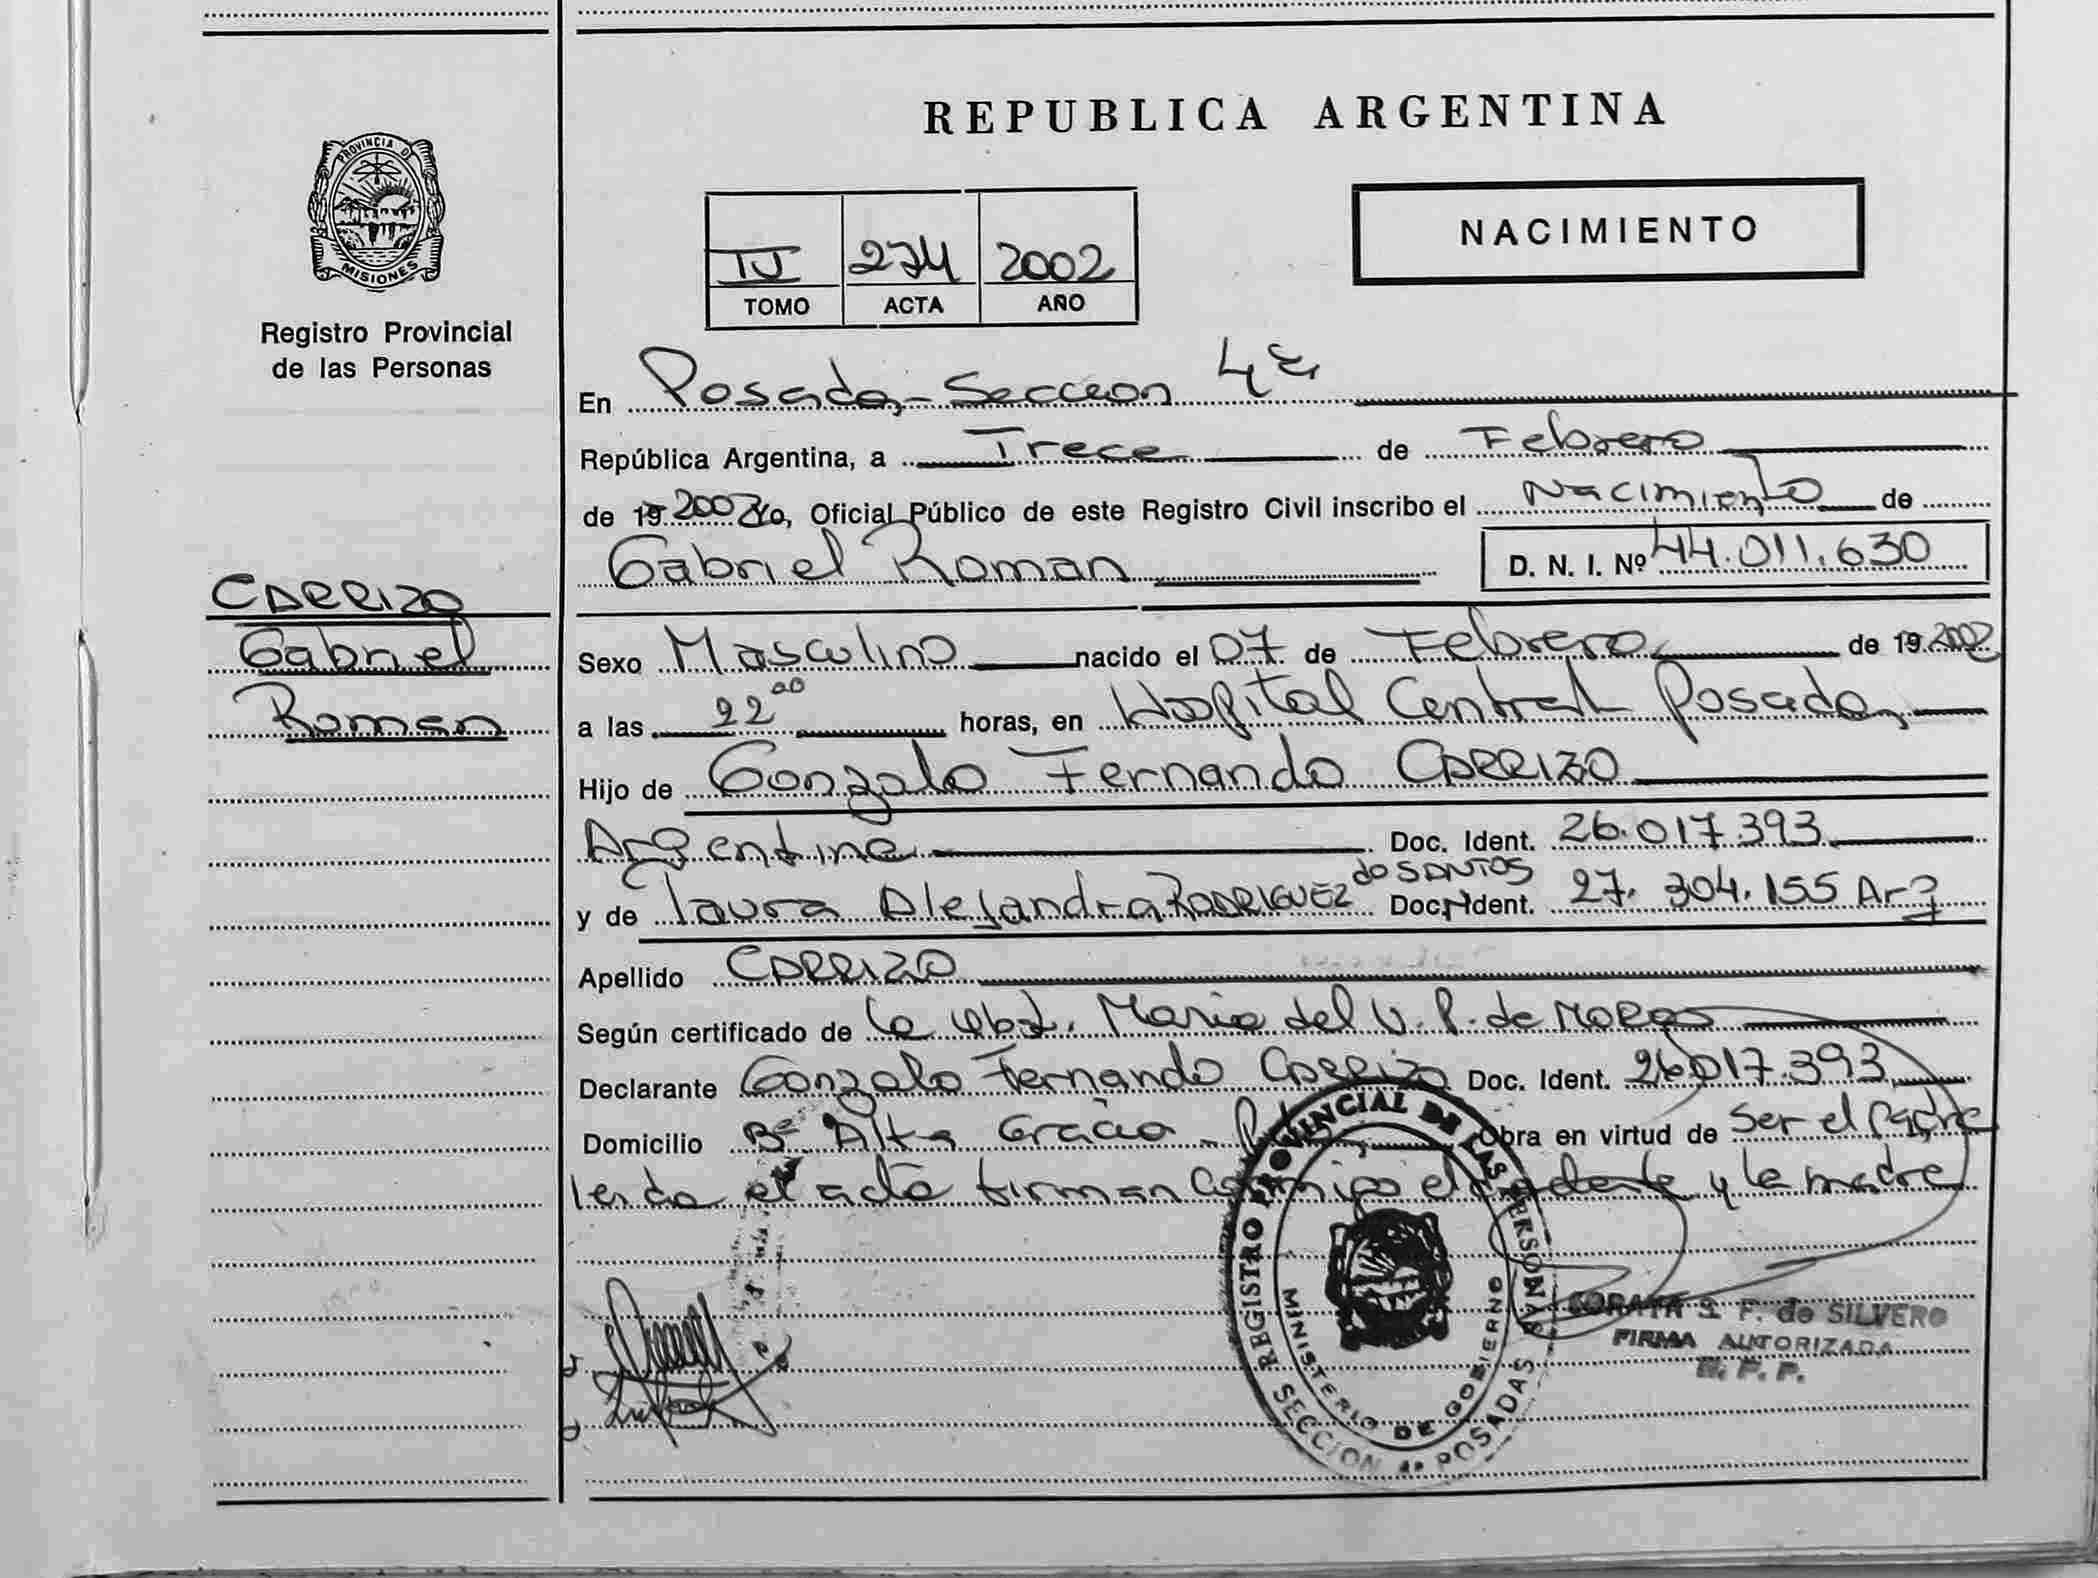 REPUBLICA ARGENTINA
PROVINCIA DE
MISIONES
Registro Provincial
de las Personas
NACIMIENTO
274 2002
TOMO ACTA AÑO
En Posadas - Seccion 4ª
República Argentina, a Trece de Febrero
de 19 2002 Yo, Oficial Público de este Registro Civil inscribo el Nacimiento de
Gabriel Roman D. N. I. Nº 44.011.630
CARRIZO
Gabriel
Roman
Sexo Masculino nacido el 07 de Febrero de 19 2002
a las 22 00 horas, en Hospital Central Posadas
Hijo de Gonzalo Fernando CARRIZO
Argentino Doc. Ident. 26.017.393
y de Laura Alejandra RODRIGUEZ do SANTOS Doc. Ident. 27.304.155 Arg
Apellido CARRIZO
Según certificado de la Obst. Maria del V. P. de MORAS
Declarante Gonzalo Fernando CARRIZO Doc. Ident. 26.017.393
Domicilio Bº Alta Gracia Obra en virtud de Ser el Padre
leida el acta firman conmigo el y la madre
REGISTRO PROVINCIAL DE LAS PERSONAS
MINISTERIO DE GOBIERNO
SECCION 4ª POSADAS
F. de SILVERO
FIRMA AUTORIZADA
R. P. P.